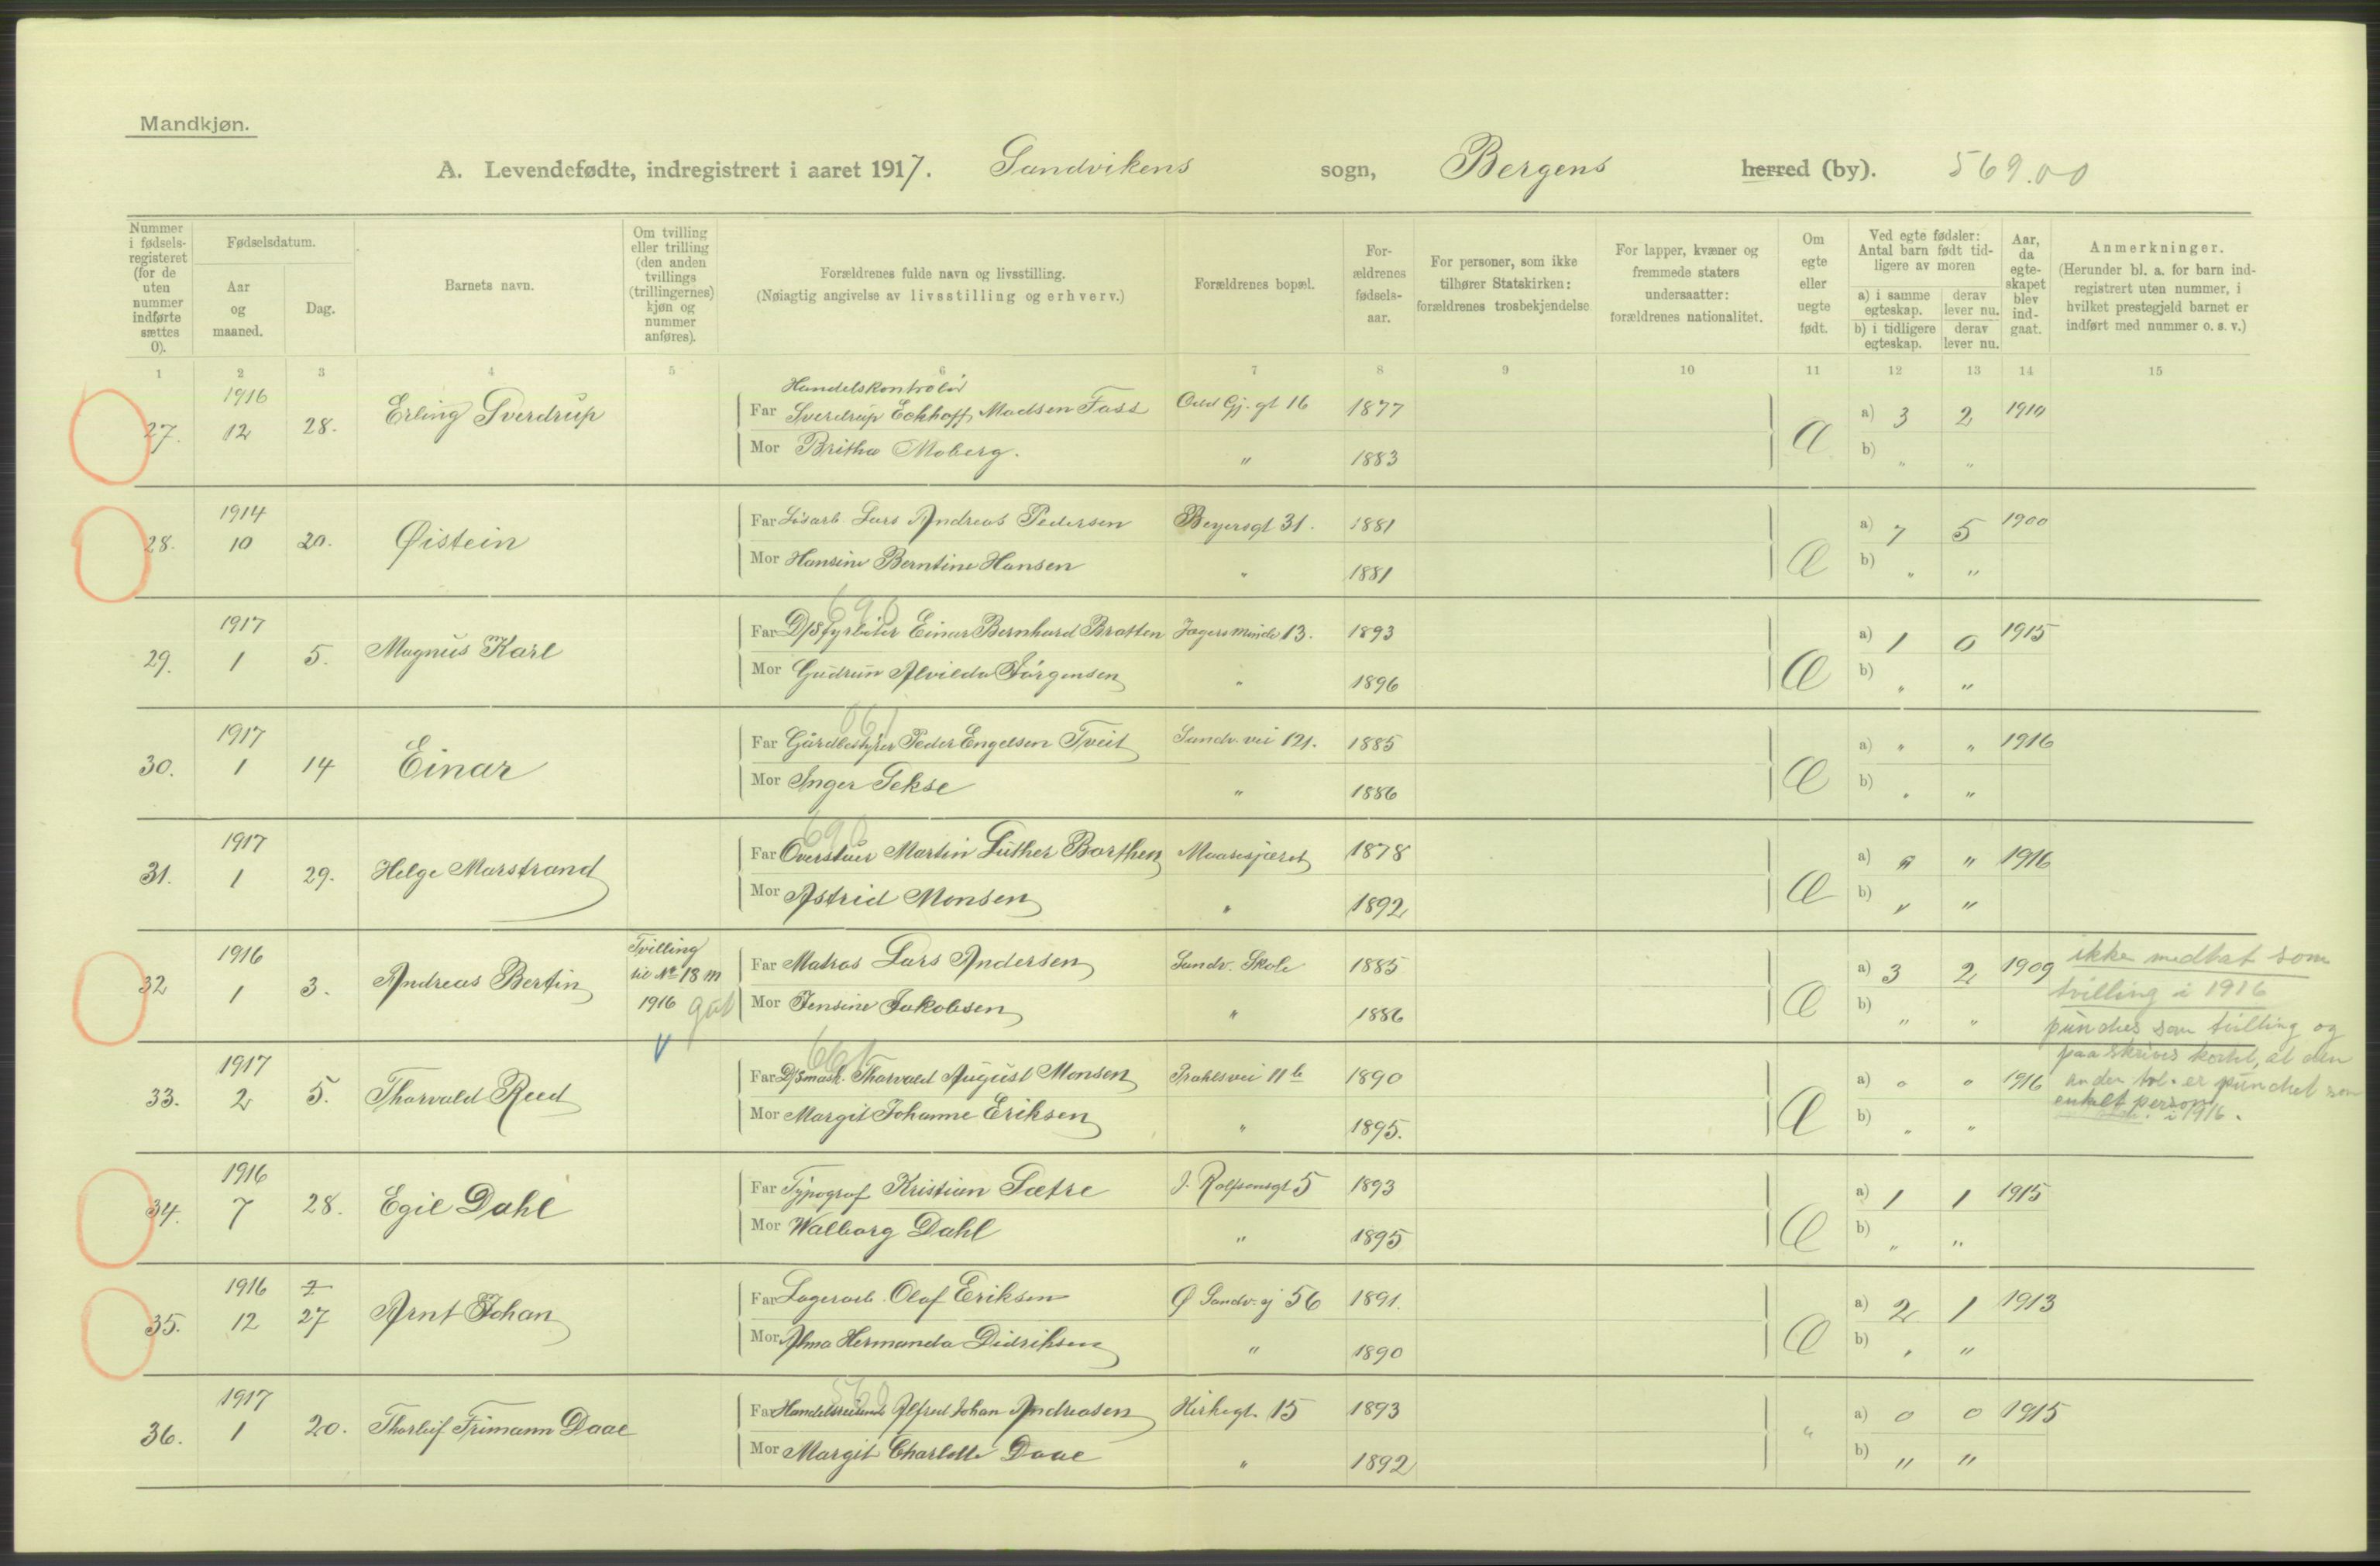 Mandkjøn.
A. Levendefødte, indregistrert i aaret 1917. Sandvikens sogn, Bergens herred (by). 569.00
Nummer i fødselsregisteret (for de uten nummer indførte sættes 0).
Fødselsdatum.
Aar og maaned.
Dag.
Barnets navn.
Om tvilling eller trilling (den anden tvillings (trillingernes) kjøn og nummer anføres).
Forældrenes fulde navn og livsstilling.
(Nøiagtig angivelse av livsstilling og erhverv.)
Forældrenes bopæl.
Forældrenes fødselsaar.
For personer, som ikke tilhører Statskirken: forældrenes trosbekjendelse
For lapper, kvæner og fremmede staters undersaatter: forældrenes nationalitet.
Om egte eller uegte født.
Ved egte fødsler: Antal barn født tidligere av moren
a) i samme egteskap. derav lever nu.
b) i tidligere egteskap. derav lever nu.
Aar, da egteskapet blev indgaat.
Anmerkninger.
(Herunder bl. a. for barn indregistrert uten nummer, i hvilket prestegjeld barnet er indført med nummer o. s. v.)
1 2 3 4 5 6 7 8 9 10 11 12 13 14 15
Handelskontrolør
27. 1916 12 28. Erling Sverdrup Far Sverdrup Eckhoff Madsen Fass Gj. gt 16 1877 a) 3 2 1910
Mor Britha Moberg. " 1883 b) " "
28. 1914 10 20. Øistein Far Løsarb. Lars Andreas Pedersen Beyersgt 31. 1881 a) 7 5 1900
Mor Hansine Berntine Hansen " 1881 b) " "
690
29. 1917 1 5. Magnus Karl Far D/S fyrbøter Einar Bernhard Bratten Jægersminde 13. 1893 a) 1 0 1915
Mor Gudrun Alvilda Jørgensen " 1896 b) " "
061
30. 1917 1 14 Einar Far Gårdbestyrer Peder Engelsen Tveit Sandv. vei 121. 1885 a) " " 1916
Mor Inger Sekse " 1886 b) " "
690
31. 1917 1 29. Helge Marstrand Far Martin Luther Barthen 1878 a) " " 1916
Mor Astrid Monsen " 1892 b) " "
32 1916 1 3. Andreas Bertin Tvilling til No 18 m 1916 Far Matros Lars Andersen Sandv. Skole 1885 a) 3 2 1909
Mor Jensine Jakobsen " 1886 b) " "
ikke medtat som
tvilling i 1916
punches som tvilling og
paaskrives kortet, at den
anden tvl. er punchet som
enkelt person i 1916.
661
33. 1917 2 5. Thorvald Reed Far D/S mask. Thorvald August Monsen Prahlsvei 11 b 1890 a) 0 0 1916
Mor Margit Johanne Eriksen " 1895. b) " "
34. 1916 7 28. Egil Dahl Far Typograf Kristian Sætre J. Rolfsensgt 5 1893 a) 1 1 1915
Mor Walborg Dahl " 1895 b) " "
35. 1916 12 7 27 Arnt Johan Far Lagerarb. Olaf Eriksen Ø Sandv. g 56 1891. a) 2 1 1913
Mor Alma Hermanda Didriksen " 1890 b) " "
560
36. 1917 1 20. Thorleif Frimann Daae Far Handelsreisende Alfred Johan Andreasen Kirkegt. 15 1893 " a) 0 0 1915
Mor Margit Charlotte Daae " 1892 b) " "